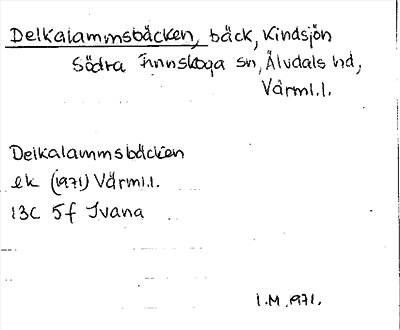 Delkalammsbäcken, bäck, Kindsjön
Södra Finnskoga sn, Älvdals hd,
Värml.l.
Delkalammsbäcken
ek (1971) Värml.l.
13C 5f Ivana
I.M.1971.